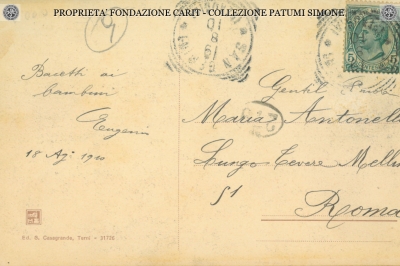 PROPRIETA' FONDAZIONE CARIT - COLLEZIONE PATUMI SIMONE
Bacetti ai
bambini
Eugenio
18 Ag. 1910
Gentil
Maria Antonell
Lungo Tevere Mellin
51
Roma
Ed. R. Casagrande, Terni - 31720
5
5